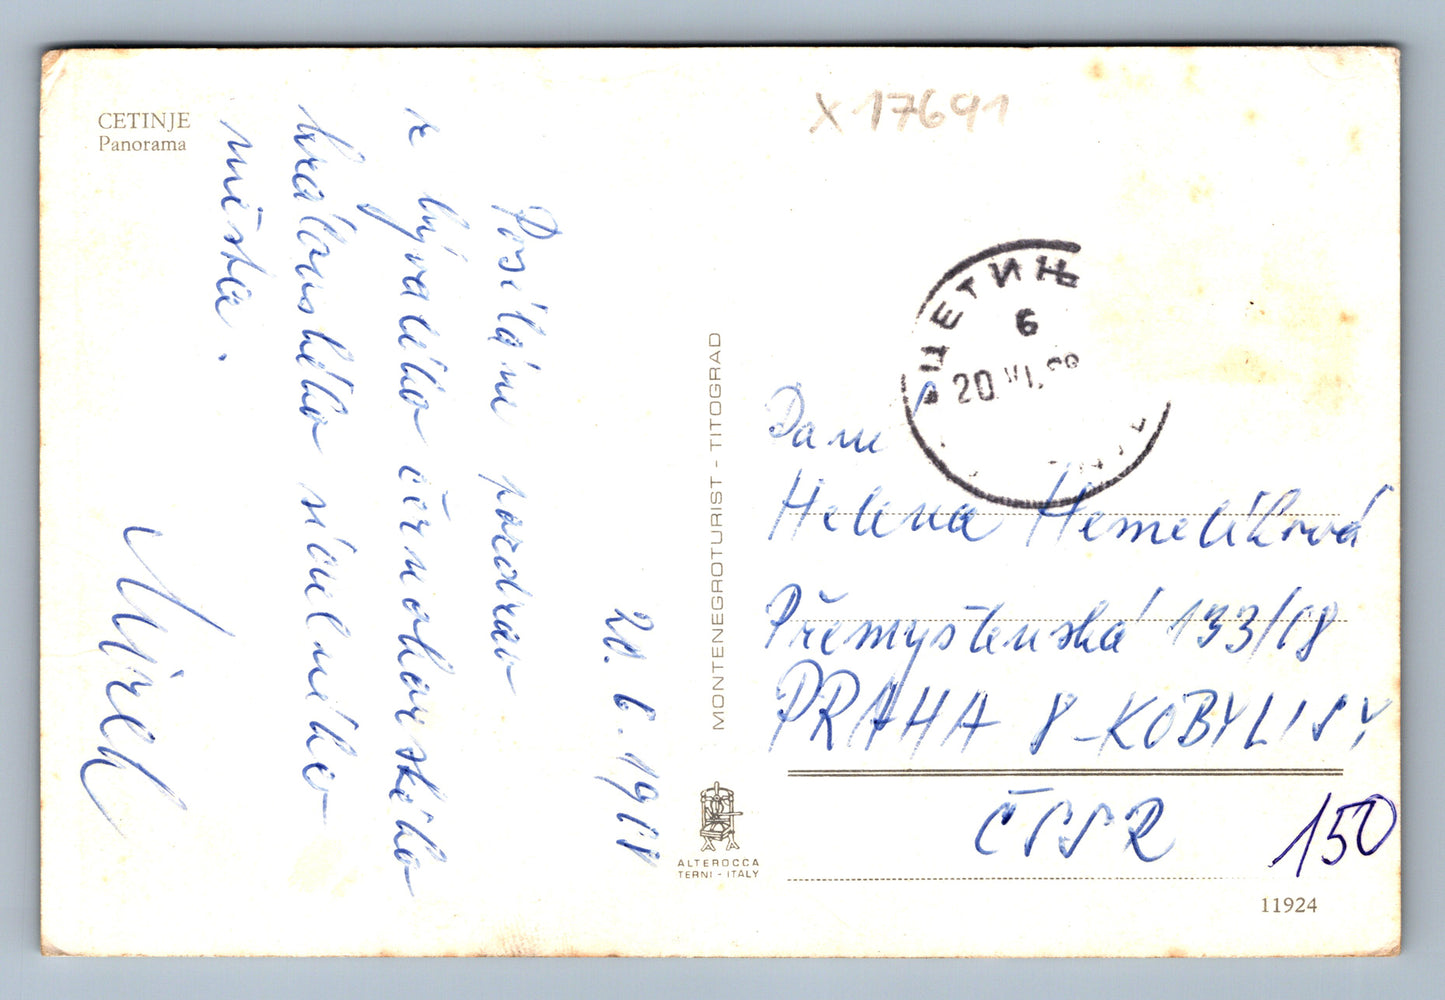 CETINJE
Panorama
20. 6. 1968
Posílám pozdrav
z bývalého černohorského
královského sídelního
města.
Mirek
MONTENEGROTURIST - TITOGRAD
ALTEROCCA
TERNI - ITALY
X 17691
ЦЕТИЊЕ
6
20 VI. 68
Helena Hemelíková
Přemyšlenská 133/18
PRAHA 8 - KOBYLISY
ČSSR
150
11924